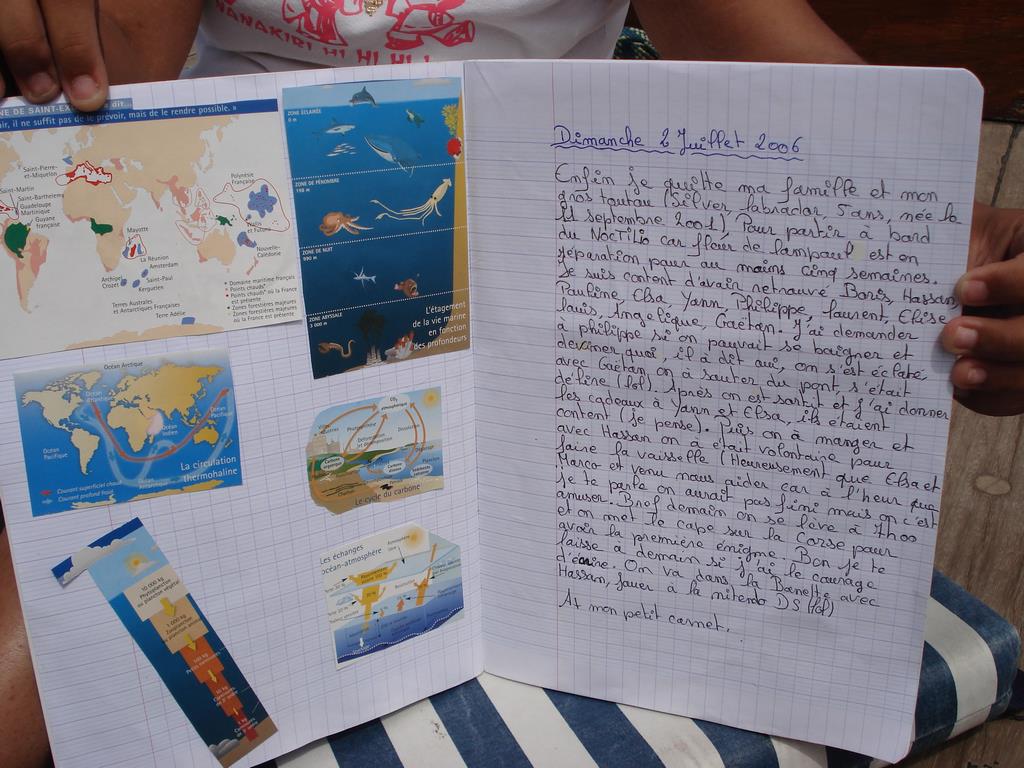 NANAKIRI HI HI HI !
NE DE SAINT-EX
dit...
ir, il ne suffit pas de le prévoir, mais de le rendre possible. »
Saint-Pierre-
et-Miquelon
Saint-Martin
Saint-Barthelemy
Guadeloupe
Martinique
Guyane
française
Mayotte
La Réunion
Amsterdam
Saint-Paul
Kerguelen
Archipel
Crozet
Terres Australes
et Antarctiques Françaises
Terre Adélie
Polynésie
Française
Wallis
et Futuna
Nouvelle-
Calédonie
Domaine maritime français
Points chauds*
Points chauds* où la France
est présente
Zones forestières majeures
où la France est présente
ZONE ÉCLAIRÉE
0 m
ZONE DE PÉNOMBRE
198 m
ZONE DE NUIT
990 m
ZONE ABYSSALE
3 000 m
L'étagement
de la vie marine
en fonction
des profondeurs
Océan Arctique
Océan
Atlantique
Océan
Pacifique
Océan
Indien
Océan
Pacifique
Océan Antarctique
La circulation
thermohaline
Courant superficiel chaud
Courant profond froid
CO₂
atmosphérique
Photosynthèse
Dissolution
Carbone
organique
Plancton
Charbon
Le cycle du carbone
10 000 kg
Phytoplancton
ou plancton végétal
1 000 kg
Zooplancton
100 kg
10 kg
1 kg
Les échanges
océan-atmosphère
Atmosphère
Dimanche 2 Juillet 2006
Enfin je quitte ma famille et mon
gros toutou (silver, labrador, 5 ans, née le
11 septembre 2001). Pour partir à bord
du NOCTILIO car fleur de lampaul est en
réparation pour au mains cinq semaines.
Je suis content d'avair retrauvé Boris, Hassan,
Pauline, Elsa, Yann, Philippe, Laurent, Elise
Lauis, Angelique, Gaëtan. J'ai demander
à philippe si on pauvait se baigner et
deviner quai, il à dit aui, on s'est éclaté,
avec Gaëtan on à sauter du pont, s'était
détine (lol). Après on est sartit et j'ai donner
les cadeaux à Yann et Elsa, ils étaient
content (je pense). Puis on à manger et
avec Hassan on à était volontaire pour
faire la vaisselle (Heureusement que Elsa et
Marco et venu naus aider car à l'heur que
je te parle on aurait pas fini mais on c'est
amuser. Bref demain on se lève à 7h00
et on met le cape sur la Corse pour
avoir la première énigme. Bon je te
laisse à demain si j'ai le caurage
d'écrire. On va dans la Banette avec
Hassan, jauer à la nitendo DS (lol)
A+ mon petit carnet.